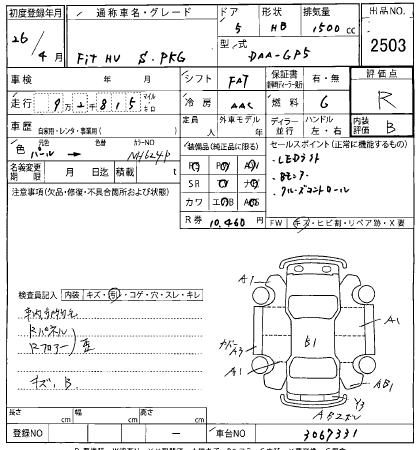 初度登録年月 通称車名・グレード ドア 形状 排気量 出品NO.
26/4月 Fit HV S.PKG 5 HB 1500cc 2503
型式 DAA-GP5
車検 年 月 シフト FAT 保証書 有・無 評価点 R
走行 9万2千815 マイル キロ 冷房 AAC 燃料 G
車歴 自家用・レンタ・事業用( ) 定員 人 外車モデル 年 ディーラー 並行 ハンドル 左・右 内装評価 B
色 元色 パール → 色替 カラーNO NH624P 装備品(純正品に限る) セールスポイント(正常に機能するもの)
名義変更期限 月 日迄 積載 t
・LEDライト
・Bモニター
・クルーズコントロール
注意事項(欠品・修復・不具合箇所および状態)
SR ナビ
カワ エアB
R券 10,460円 FW キズ・ヒビ割・リペア跡・X要
検査員記入 内装 キズ・汚・コゲ・穴・スレ・キレ
Rパネル
Rフロアー 歪
キズ、B.
A1
B1
A1
A3
A1
AB1
Y3
長さ cm 幅 cm 高さ cm
登録NO ー 車台NO 3067331